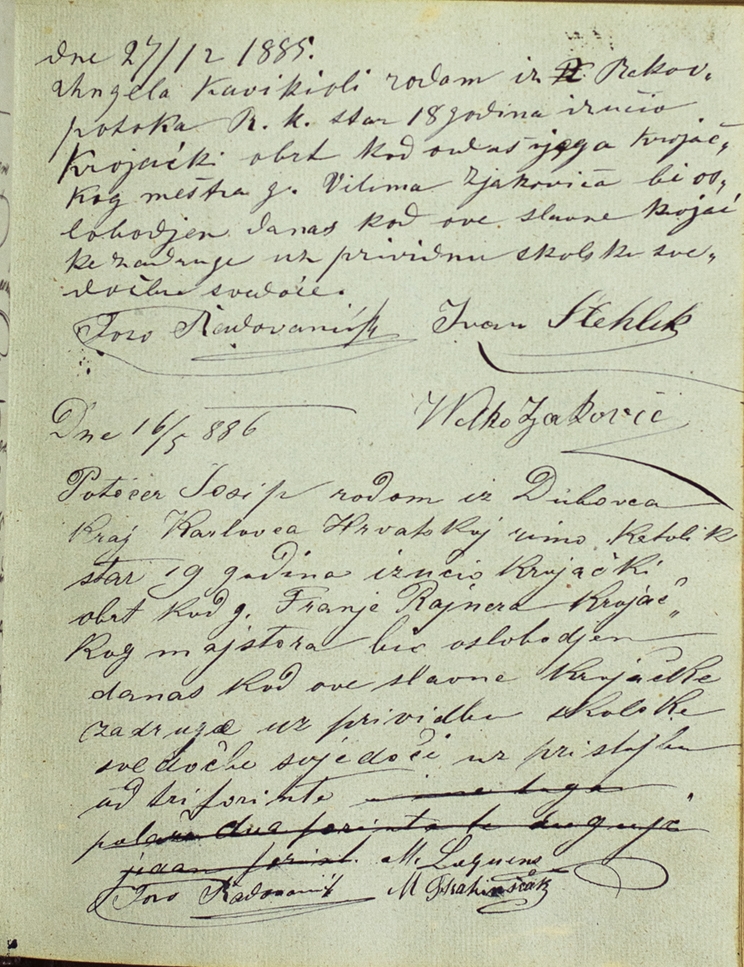 dne 27/12 1885.
Angela Kavikioli rodom iz Rekov„
potoka R. k. star 18 godina izučio
Krojački obrt kod ovdašnjega Krojač„
kog meštra g. Vilima Zjakoviča bi os„
lobodjen danas kod ove slavne kojač
ke zadruge uz prividnu školske sve„
dočbe svedoče.
Joso Radovanić Ivan Stehlik
Dne 16/5 886
Potočer Josip rodom iz Dubovca
kraj Karlovca Hrvatskoj rimo. katolik
star 19 godina izučio Krojački
obrt kod g. Franje Rajnera Krojač„
kog majstora bio oslobodjen
danas kod ove slavne Krojačke
zadruge uz prividbu školske
svedočbe svjedoči uz pristojbu
od tri forinte
dva forinta
jedan forint. M.
Joso Radovanić M